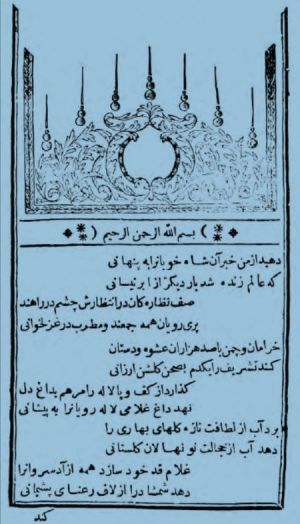 بسم الله الرحمن الرحيم
دهید از من خبر آن شاه خوبانرا به پنهانی
که عالم زنده شد بار دیگر از ابر نیسانی
صف نظاره کان در انتظارش چشم در راهند
پری رویان همه جمعند و مطرب در غزلخوانی
خرامان و چمن با صد هزاران عشوه و دستان
کند تشریف را یکدم بصحن گلشن ارزانی
گذارد از کف و پا لاله را مرهم بداغ دل
نهد داغ غلامی لاله رویانرا به پیشانی
برد آب از لطافت تازه گلهای بهاری را
دهد آب از خجالت نو نهالان گلستانی
غلام قد خود سازد همه آزاد سروانرا
دهد شمشاد را از لاف رعنای پشیمانی
کند